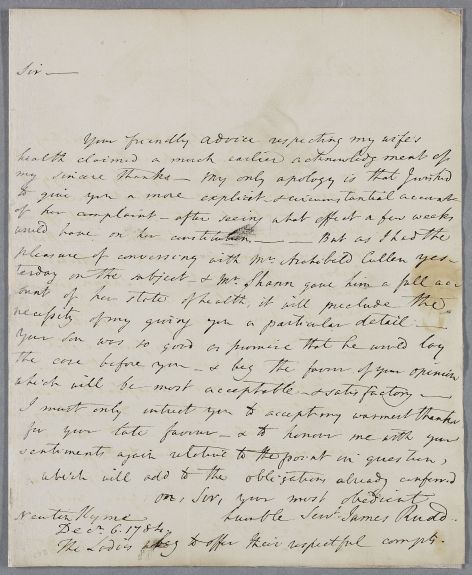 Sir —
Your friendly advice respecting my wife's
health claimed a much earlier acknowledgment of
my sincere thanks — My only apology is that I wished
to give you a more explicit & circumstantial account
of her complaint — after seeing what effect a few weeks
would have on her constitution — — But as I had the
pleasure of conversing with Mr. Archibald Cullen yes-
terday on the subject — & Mr. Shann gave him a full acc-
ount of her state of health, it will preclude the
necessity of my giving you a particular detail —
Your son was so good as promise that he would lay
the case before you — & beg the favor of your opinion
which will be most acceptable — & satisfactory —
I must only intreat you to accept my warmest thanks
for your late favour — & to honour me with your
sentiments again relative to the point in question,
which will add to the obligations already conferred
on, Sir, your most obedient
humble Servt. James Rudd.
Newton Kyme
Decr. 6. 1784
The Ladies beg to offer their respectful compts.